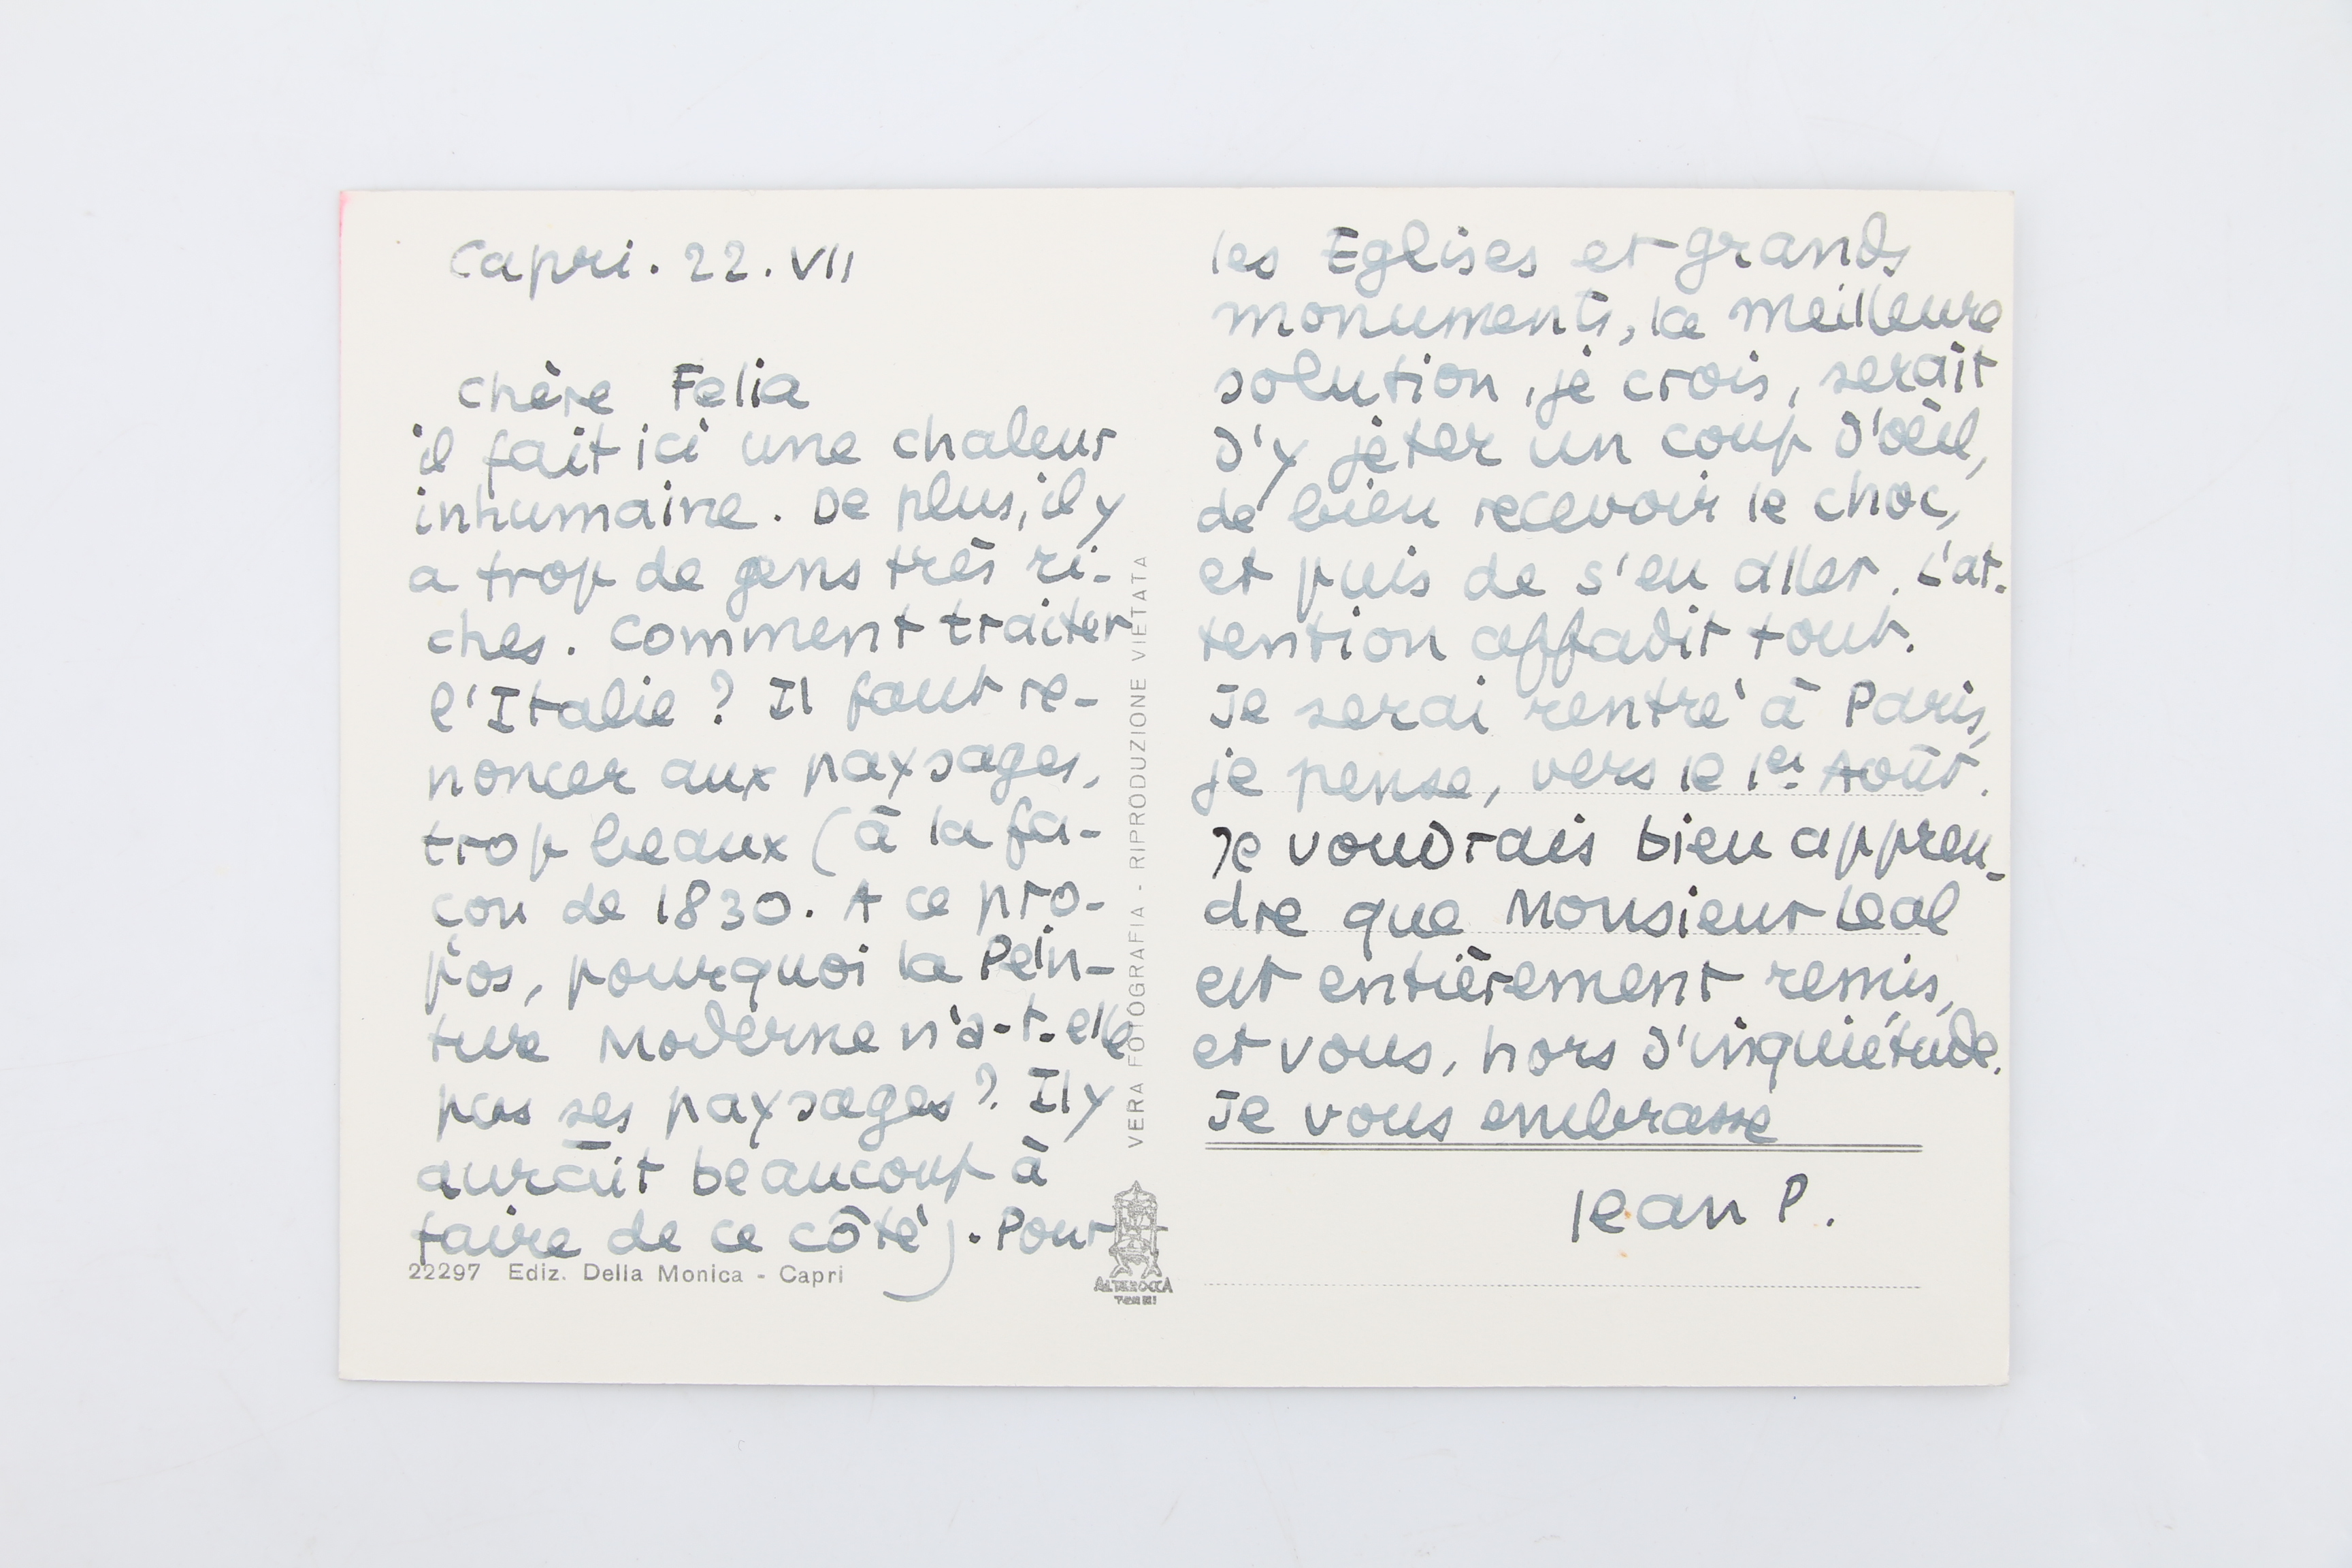 Capri. 22. VII
Chère Felia
il fait ici une chaleur
inhumaine. De plus, il y
a trop de gens très ri-
ches. Comment traiter
l'Italie ? Il faut re-
noncer aux paysages,
trop beaux (à la fa-
con de 1830. A ce pro-
pos, pourquoi la Pein-
ture Moderne n'a-t-elle
pas ses paysages ? Il y
aurait beaucoup à
faire de ce côté). Pour
22297 Ediz. Della Monica - Capri
VERA FOTOGRAFIA - RIPRODUZIONE VIETATA
ALTEROCCA
TERNI
les Eglises et grands
monuments, la meilleure
solution, je crois, serait
d'y jeter un coup d'œil,
de bien recevoir le choc,
et puis de s'en aller. L'at-
tention affadit tout.
Je serai rentré à Paris,
je pense, vers le 1er Août.
Je voudrais bien appren-
dre que Monsieur Leal
est entièrement remis,
et vous, hors d'inquiétude.
Je vous embrasse
Jean P.